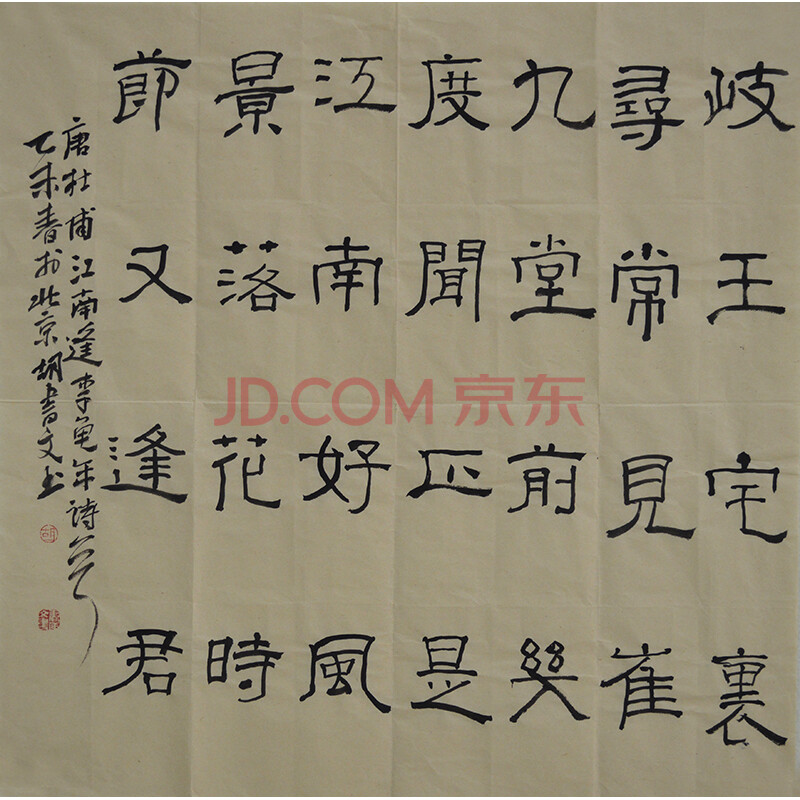 岐王宅裏
尋常見崔
九堂前幾
度聞正是
江南好風
景落花時
節又逢君
唐杜甫江南逢李龜年詩
乙未春於北京胡書文书
JD.COM 京东